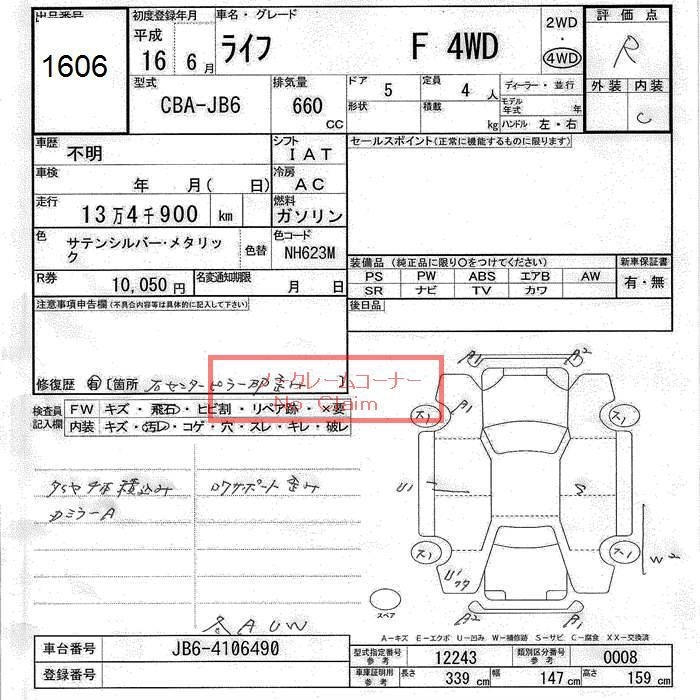 出品番号 初度登録年月 車名・グレード 2WD 評価点
1606 平成 ライフ F 4WD ・ R
16 6月 4WD
型式 排気量 ドア 5 定員 4人 ディーラー・並行 外装 内装
CBA-JB6 660 cc 形状 積載 kg モデル年式 年 C
ハンドル 左・右
車歴 不明 シフト IAT セールスポイント(正常に機能するものに限ります)
車検 年 月( 日) 冷房 AC
走行 13万4千900 km 燃料 ガソリン
色 サテンシルバー・メタリック 色替 色コード NH623M
装備品(純正品に限り○をつけてください) 新車保証書
R券 10,050円 名変通知期限 月 日 PS PW ABS エアB AW 有・無
SR ナビ TV カワ
注意事項申告欄(不具合内容等は具体的に記入して下さい) 後日品
修復歴 有 [箇所 右センターピラー部 ]
ノークレームコーナー
No Claim
検査員記入欄 FW キズ・飛石・ヒビ割・リペア跡・×要
内装 キズ・汚レ・コゲ・穴・スレ・キレ・破レ
タイヤ4本積込み ロアサポート歪み
ミラーA
A1 A2
A1
ス1 ス1
U1 S
W2
ス1 ス1
U1
A2 A1
スペア
AUW
A－キズ E－エクボ U－凹み W－補修跡 S－サビ C－腐食 XX－交換済
車台番号 JB6-4106490 型式指定番号 参考 12243 類別区分番号 参考 0008
登録番号 車庫証明用 参考 長さ 339 cm 幅 147 cm 高さ 159 cm